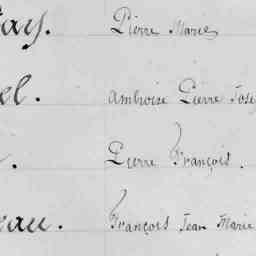 ay. Pierre Marie
el. Ambroise Pierre Jose
. Pierre François.
eau. François Jean Marie